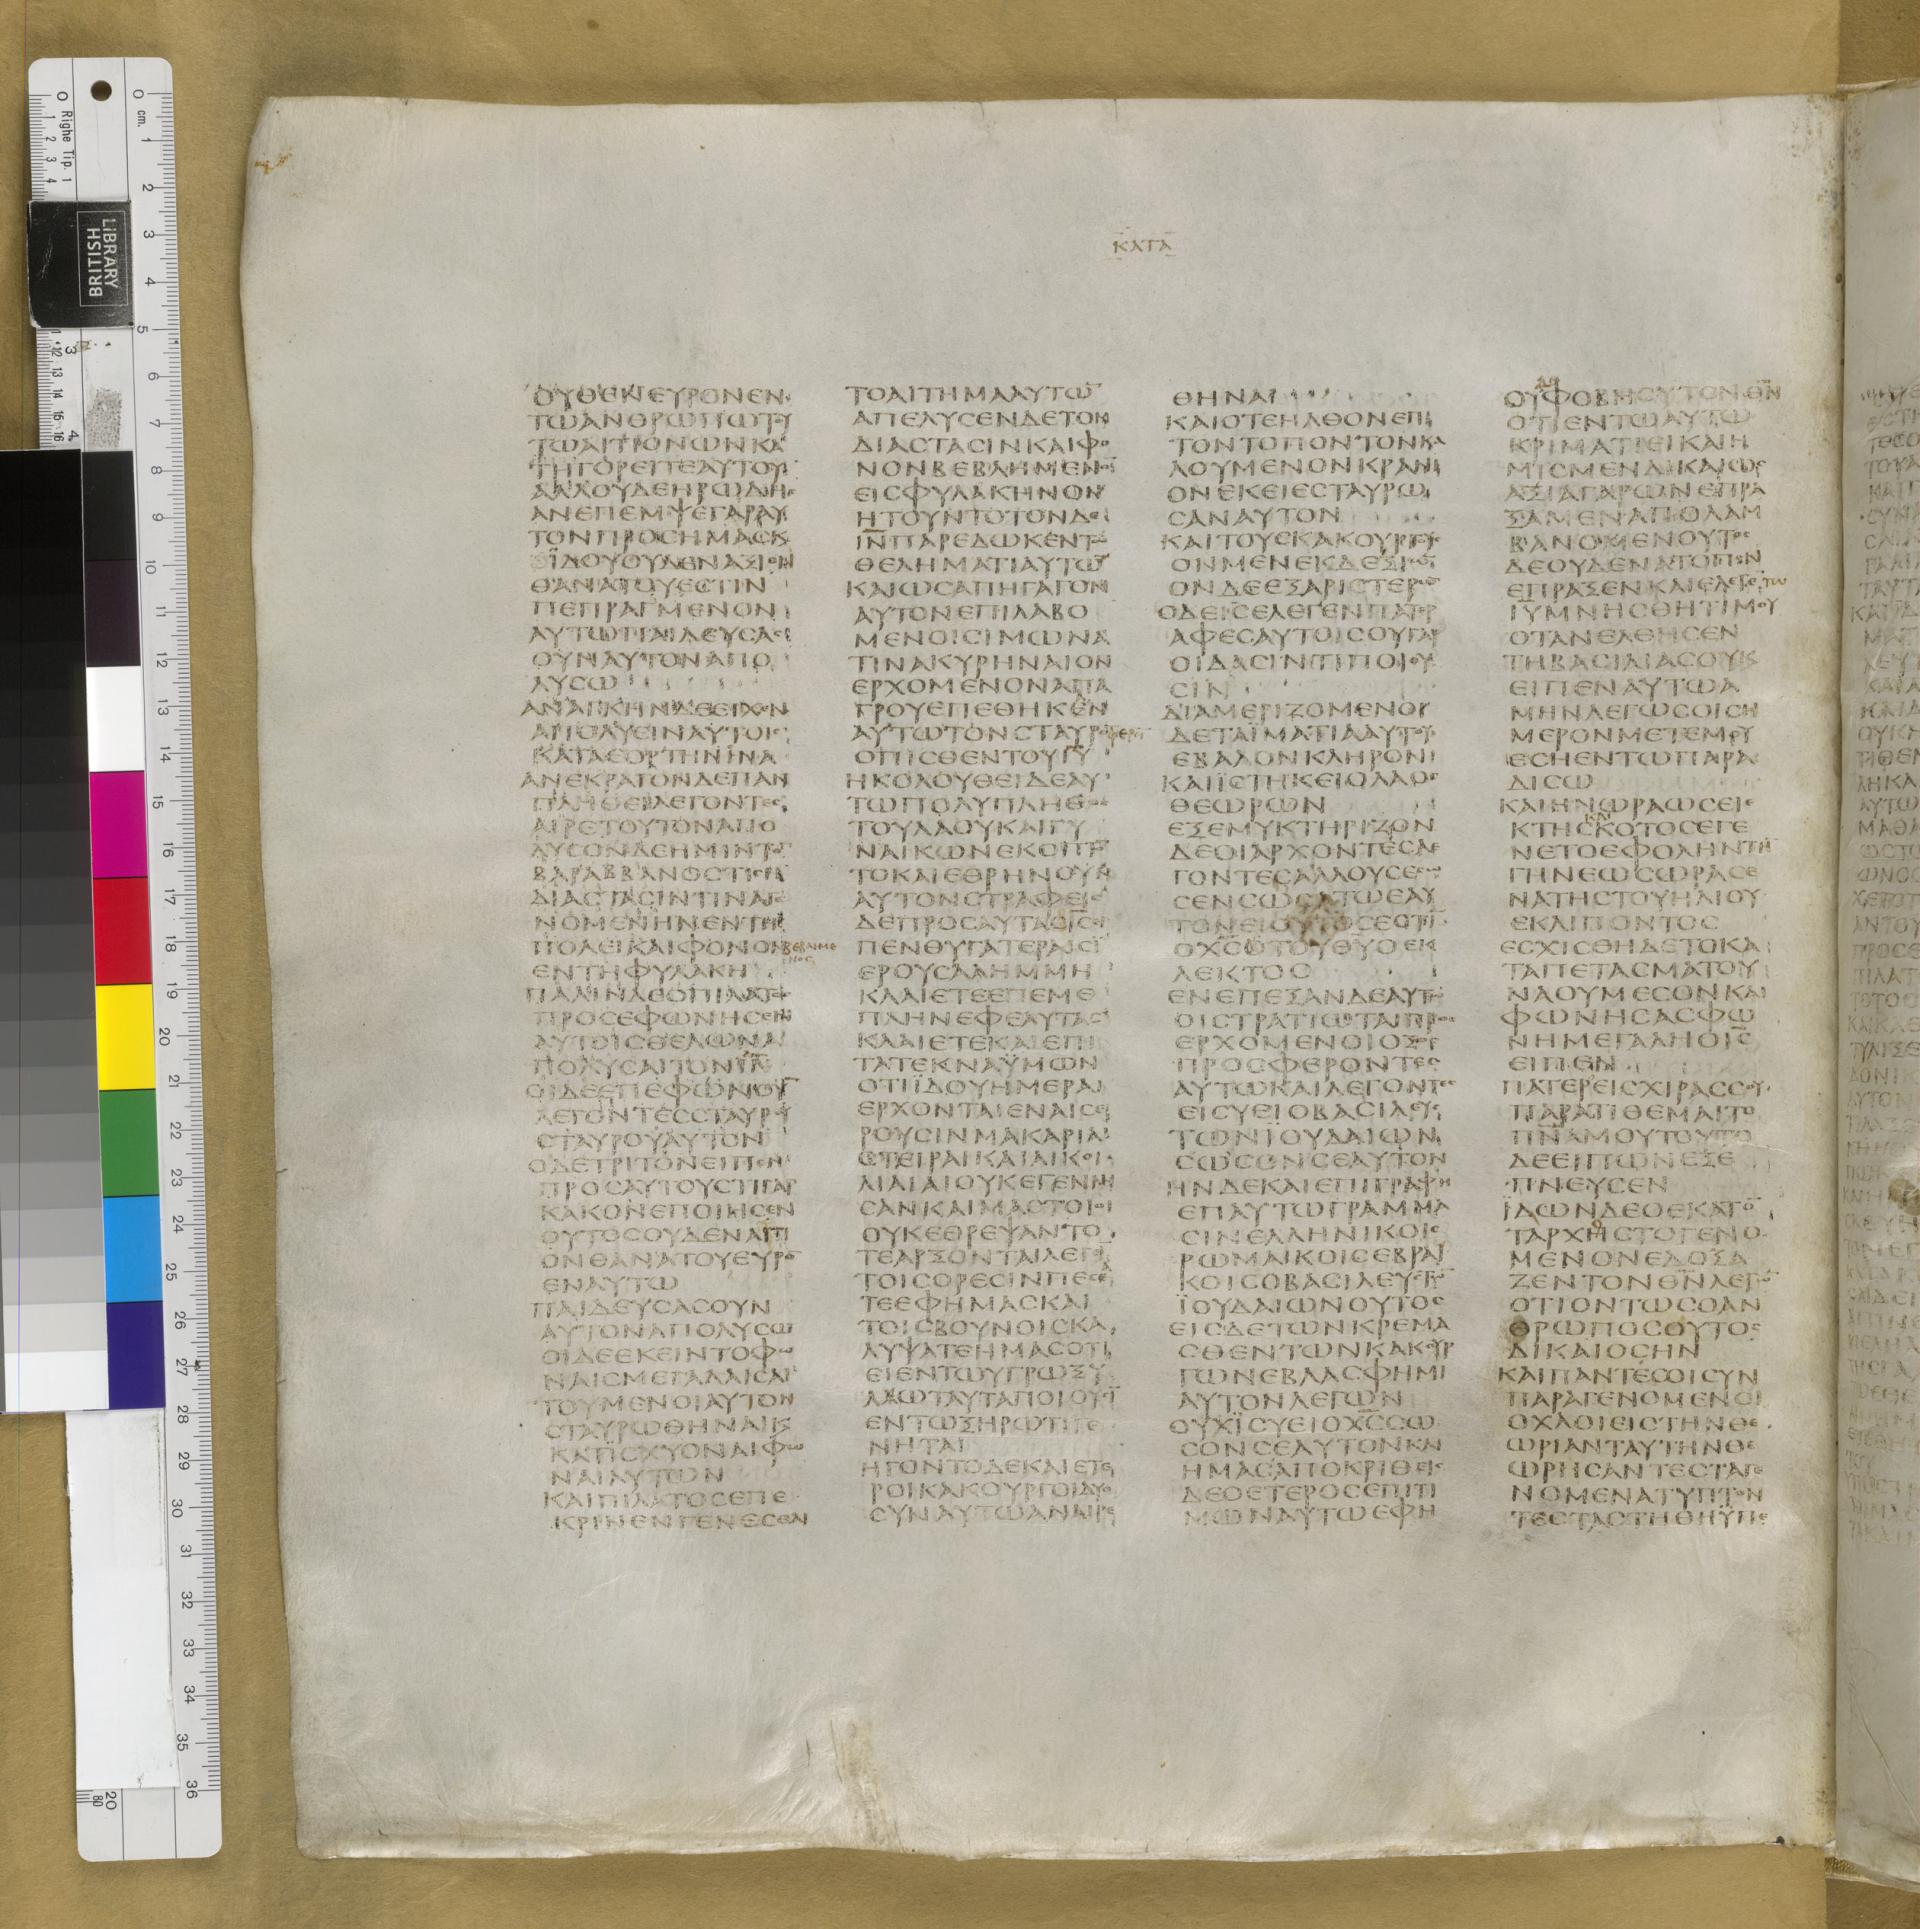 ΚΑΤΑ
ΟΥΘΕΝ ΕΥΡΟΝ ΕΝ
ΤΩ ΑΝΘΡΩΠΩ ΤΟΥ
ΤΩ ΑΙΤΙΟΝ ΩΝ ΚΑ
ΤΗΓΟΡΕΙΤΕ ΑΥΤΟΥ
ΑΛΛ ΟΥΔΕ ΗΡΩΔΗϹ
ΑΝΕΠΕΜΨΕ ΓΑΡ ΑΥ
ΤΟΝ ΠΡΟϹ ΗΜΑϹ Κ
ΪΔΟΥ ΟΥΔΕΝ ΑΞΙΟΝ
ΘΑΝΑΤΟΥ ΕϹΤΙΝ
ΠΕΠΡΑΓΜΕΝΟΝ
ΑΥΤΩ ΠΑΙΔΕΥϹΑϹ
ΟΥΝ ΑΥΤΟΝ ΑΠΟ
ΛΥϹΩ
ΑΝΑΓΚΗΝ ΔΕ ΕΙΧΟΝ
ΑΠΟΛΥΕΙΝ ΑΥΤΟΙϹ
ΚΑΤΑ ΕΟΡΤΗΝ ΙΝΑ
ΑΝΕΚΡΑΓΟΝ ΔΕ ΠΑΝ
ΠΛΗΘΕΙ ΛΕΓΟΝΤΕϹ
ΑΙΡΕ ΤΟΥΤΟΝ ΑΠΟ
ΛΥϹΟΝ ΔΕ ΗΜΙΝ ΤΟΝ
ΒΑΡΑΒΒΑΝ ΟϹΤΙϹ ΔΙΑ
ΔΙΑϹΤΑϹΙΝ ΤΙΝΑ ΓΕ
ΝΟΜΕΝΗΝ ΕΝ ΤΗ
ΠΟΛΕΙ ΚΑΙ ΦΟΝΟΝ ΒΕΒΛΗΜΕ
ΝΟϹ
ΕΝ ΤΗ ΦΥΛΑΚΗ
ΠΑΛΙΝ ΔΕ Ο ΠΙΛΑΤΟϹ
ΠΡΟϹΕΦΩΝΗϹΕΝ
ΑΥΤΟΙϹ ΘΕΛΩΝ Α
ΠΟΛΥϹΑΙ ΤΟΝ ΙΝ
ΟΙ ΔΕ ΕΠΕΦΩΝΟΥΝ
ΛΕΓΟΝΤΕϹ ϹΤΑΥΡΟΥ
ϹΤΑΥΡΟΥ ΑΥΤΟΝ
Ο ΔΕ ΤΡΙΤΟΝ ΕΙΠΕΝ
ΠΡΟϹ ΑΥΤΟΥϹ ΤΙ ΓΑΡ
ΚΑΚΟΝ ΕΠΟΙΗϹΕΝ
ΟΥΤΟϹ ΟΥΔΕΝ ΑΙΤΙ
ΟΝ ΘΑΝΑΤΟΥ ΕΥΡΟΝ
ΕΝ ΑΥΤΩ
ΠΑΙΔΕΥϹΑϹ ΟΥΝ
ΑΥΤΟΝ ΑΠΟΛΥϹΩ
ΟΙ ΔΕ ΕΚΕΙΝΤΟ ΦΩ
ΝΑΙϹ ΜΕΓΑΛΑΙϹ ΑΙ
ΤΟΥΜΕΝΟΙ ΑΥΤΟΝ
ϹΤΑΥΡΩΘΗΝΑΙ Κ
ΚΑΤΙϹΧΥΟΝ ΑΙ ΦΩ
ΝΑΙ ΑΥΤΩΝ
ΚΑΙ ΠΙΛΑΤΟϹ ΕΠΕ
ΚΡΙΝΕΝ ΓΕΝΕϹΘΑΙ
ΤΟ ΑΙΤΗΜΑ ΑΥΤΩΝ
ΑΠΕΛΥϹΕΝ ΔΕ ΤΟΝ
ΔΙΑ ϹΤΑϹΙΝ ΚΑΙ ΦΟ
ΝΟΝ ΒΕΒΛΗΜΕΝΟΝ
ΕΙϹ ΦΥΛΑΚΗΝ ΟΝ
ΗΤΟΥΝΤΟ ΤΟΝ ΔΕ
ΙΝ ΠΑΡΕΔΩΚΕΝ ΤΩ
ΘΕΛΗΜΑΤΙ ΑΥΤΩΝ
ΚΑΙ ΩϹ ΑΠΗΓΑΓΟΝ
ΑΥΤΟΝ ΕΠΙΛΑΒΟ
ΜΕΝΟΙ ϹΙΜΩΝΑ
ΤΙΝΑ ΚΥΡΗΝΑΙΟΝ
ΕΡΧΟΜΕΝΟΝ ΑΠ Α
ΓΡΟΥ ΕΠΕΘΗΚΕΝ
ΑΥΤΩ ΤΟΝ ϹΤΑΥΡΟΝ ΦΕΡΙΝ
ΟΠΙϹΘΕΝ ΤΟΥ ΙΥ
ΗΚΟΛΟΥΘΕΙ ΔΕ ΑΥ
ΤΩ ΠΟΛΥ ΠΛΗΘΟϹ
ΤΟΥ ΛΑΟΥ ΚΑΙ ΓΥ
ΝΑΙΚΩΝ ΕΚΟΠΤΟΝ
ΤΟ ΚΑΙ ΕΘΡΗΝΟΥΝ
ΑΥΤΟΝ ϹΤΡΑΦΕΙϹ
ΔΕ ΠΡΟϹ ΑΥΤΑϹ ΙϹ ΕΙ
ΠΕΝ ΘΥΓΑΤΕΡΑΙϹ Ϊ
ΕΡΟΥϹΑΛΗΜ ΜΗ
ΚΛΑΙΕΤΕ ΕΠ ΕΜΕ
ΠΛΗΝ ΕΦ ΕΑΥΤΑϹ
ΚΛΑΙΕΤΕ ΚΑΙ ΕΠΙ
ΤΑ ΤΕΚΝΑ ΫΜΩΝ
ΟΤΙ ΪΔΟΥ ΗΜΕΡΑΙ
ΕΡΧΟΝΤΑΙ ΕΝ ΑΙϹ Ε
ΡΟΥϹΙΝ ΜΑΚΑΡΙΑΙ
Ε ϹΤΕΙΡΑΙ ΚΑΙ ΑΙ ΚΟΙ
ΛΙΑΙ ΑΙ ΟΥΚ ΕΓΕΝΝΗ
ϹΑΝ ΚΑΙ ΜΑϹΤΟΙ ΟΙ
ΟΥΚ ΕΘΡΕΨΑΝ ΤΟ
ΤΕ ΑΡΞΟΝΤΑΙ ΛΕΓΕΙΝ
ΤΟΙϹ ΟΡΕϹΙΝ ΠΕϹΑ
ΤΕ ΕΦ ΗΜΑϹ ΚΑΙ
ΤΟΙϹ ΒΟΥΝΟΙϹ ΚΑ
ΛΥΨΑΤΕ ΗΜΑϹ ΟΤΙ
ΕΙ ΕΝ ΤΩ ΥΓΡΩ ΞΥ
ΛΩ ΤΑΥΤΑ ΠΟΙΟΥϹΙ
ΕΝ ΤΩ ΞΗΡΩ ΤΙ ΓΕ
ΝΗΤΑΙ
ΗΓΟΝΤΟ ΔΕ ΚΑΙ ΕΤΕ
ΡΟΙ ΚΑΚΟΥΡΓΟΙ ΔΥΟ
ϹΥΝ ΑΥΤΩ ΑΝΑΙΡΕ
ΘΗΝΑΙ
ΚΑΙ ΟΤΕ ΗΛΘΟΝ ΕΠΙ
ΤΟΝ ΤΟΠΟΝ ΤΟΝ ΚΑ
ΛΟΥΜΕΝΟΝ ΚΡΑΝΙ
ΟΝ ΕΚΕΙ ΕϹΤΑΥΡΩ
ϹΑΝ ΑΥΤΟΝ
ΚΑΙ ΤΟΥϹ ΚΑΚΟΥΡΓΟΥϹ
ΟΝ ΜΕΝ ΕΚ ΔΕΞΙΩΝ
ΟΝ ΔΕ ΕΞ ΑΡΙϹΤΕΡΩΝ
Ο ΔΕ ΙϹ ΕΛΕΓΕΝ ΠΑΤΕΡ
ΑΦΕϹ ΑΥΤΟΙϹ ΟΥ ΓΑΡ
ΟΙΔΑϹΙΝ ΤΙ ΠΟΙΟΥ
ϹΙΝ
ΔΙΑΜΕΡΙΖΟΜΕΝΟΙ
ΔΕ ΤΑ ΪΜΑΤΙΑ ΑΥΤΟΥ
ΕΒΑΛΟΝ ΚΛΗΡΟΝ
ΚΑΙ ΪϹΤΗΚΕΙ Ο ΛΑΟϹ
ΘΕΩΡΩΝ
ΕΞΕΜΥΚΤΗΡΙΖΟΝ
ΔΕ ΟΙ ΑΡΧΟΝΤΕϹ ΛΕ
ΓΟΝΤΕϹ ΑΛΛΟΥϹ Ε
ϹΕΝ ϹΩϹΑΤΩ ΕΑΥ
ΤΟΝ ΕΙ ΟΥΤΟϹ ΕϹΤΙΝ
Ο ΧϹ Ο ΤΟΥ ΘΥ Ο ΕΚ
ΛΕΚΤΟϹ
ΕΝΕΠΕΞΑΝ ΔΕ ΑΥΤΩ
ΟΙ ϹΤΡΑΤΙΩΤΑΙ ΠΡΟϹ
ΕΡΧΟΜΕΝΟΙ ΟΞΟϹ
ΠΡΟϹΦΕΡΟΝΤΕϹ
ΑΥΤΩ ΚΑΙ ΛΕΓΟΝΤΕϹ
ΕΙ ϹΥ ΕΙ Ο ΒΑϹΙΛΕΥϹ
ΤΩΝ ΪΟΥΔΑΙΩΝ
ϹΩϹΟΝ ϹΕΑΥΤΟΝ
ΗΝ ΔΕ ΚΑΙ ΕΠΙΓΡΑΦΗ
ΕΠ ΑΥΤΩ ΓΡΑΜΜΑ
ϹΙΝ ΕΛΛΗΝΙΚΟΙϹ
ΡΩΜΑΙΚΟΙϹ ΕΒΡΑΪ
ΚΟΙϹ Ο ΒΑϹΙΛΕΥϹ ΤΩΝ
ΪΟΥΔΑΙΩΝ ΟΥΤΟϹ
ΕΙϹ ΔΕ ΤΩΝ ΚΡΕΜΑ
ϹΘΕΝΤΩΝ ΚΑΚΟΥΡ
ΓΩΝ ΕΒΛΑϹΦΗΜΙ
ΑΥΤΟΝ ΛΕΓΩΝ
ΟΥΧΪ ϹΥ ΕΙ Ο ΧϹ ϹΩ
ϹΟΝ ϹΕΑΥΤΟΝ ΚΑΙ
ΗΜΑϹ ΑΠΟΚΡΙΘΕΙϹ
ΔΕ Ο ΕΤΕΡΟϹ ΕΠΙΤΙ
ΜΩΝ ΑΥΤΩ ΕΦΗ
ΟΥ ΦΟΒΗ ϹΥ ΤΟΝ ΘΝ
ΟΤΙ ΕΝ ΤΩ ΑΥΤΩ
ΚΡΙΜΑΤΙ ΕΙ ΚΑΙ Η
ΜΙϹ ΜΕΝ ΔΙΚΑΙΩϹ
ΑΞΙΑ ΓΑΡ ΩΝ ΕΠΡΑ
ΞΑΜΕΝ ΑΠΟΛΑΜ
ΒΑΝΟΜΕΝ ΟΥΤΟϹ
ΔΕ ΟΥΔΕΝ ΑΤΟΠΟΝ
ΕΠΡΑΞΕΝ ΚΑΙ ΕΛΕΓΕ ΤΩ
ΙΥ ΜΝΗϹΘΗΤΙ ΜΟΥ
ΟΤΑΝ ΕΛΘΗϹ ΕΝ
ΤΗ ΒΑϹΙΛΙΑ ϹΟΥ Κ
ΕΙΠΕΝ ΑΥΤΩ Α
ΜΗΝ ΛΕΓΩ ϹΟΙ ϹΗ
ΜΕΡΟΝ ΜΕΤ ΕΜΟΥ
ΕϹΗ ΕΝ ΤΩ ΠΑΡΑ
ΔΙϹΩ
ΚΑΙ ΗΝ ΩΡΑ ΩϹΕΙ Ε
ΚΑΙ
ΚΤΗ ϹΚΟΤΟϹ ΕΓΕ
ΝΕΤΟ ΕΦ ΟΛΗΝ ΤΗΝ
ΓΗΝ ΕΩϹ ΩΡΑϹ Ε
ΝΑΤΗϹ ΤΟΥ ΗΛΙΟΥ
ΕΚΛΙΠΟΝΤΟϹ
ΕϹΧΙϹΘΗ ΔΕ ΤΟ ΚΑ
ΤΑΠΕΤΑϹΜΑ ΤΟΥ
ΝΑΟΥ ΜΕϹΟΝ ΚΑΙ
ΦΩΝΗϹΑϹ ΦΩ
ΝΗ ΜΕΓΑΛΗ Ο ΙϹ
ΕΙΠΕΝ
ΠΑΤΕΡ ΕΙϹ ΧΙΡΑϹ ϹΟΥ
ΠΑΡΑΤΙΘΕΜΑΙ ΤΟ
ΠΝΑ ΜΟΥ ΤΟΥΤΟ
ΔΕ ΕΙΠΩΝ ΕΞΕ
ΠΝΕΥϹΕΝ
ΪΔΩΝ ΔΕ Ο ΕΚΑΤΟΝ
ΤΑΡΧΗϹ ΤΟ ΓΕΝΟ
ΜΕΝΟΝ ΕΔΟΞΑ
ΖΕΝ ΤΟΝ ΘΝ ΛΕΓΩΝ
ΟΤΙ ΟΝΤΩϹ Ο ΑΝ
ΘΡΩΠΟϹ ΟΥΤΟϹ
ΔΙΚΑΙΟϹ ΗΝ
ΚΑΙ ΠΑΝΤΕϹ ΟΙ ϹΥΝ
ΠΑΡΑΓΕΝΟΜΕΝΟΙ
ΟΧΛΟΙ ΕΙϹ ΤΗΝ ΘΕ
ΩΡΙΑΝ ΤΑΥΤΗΝ ΘΕ
ΩΡΗϹΑΝΤΕϹ ΤΑ ΓΕ
ΝΟΜΕΝΑ ΤΥΠΤΟΝ
ΤΕϹ ΤΑ ϹΤΗΘΗ ΫΠΕ